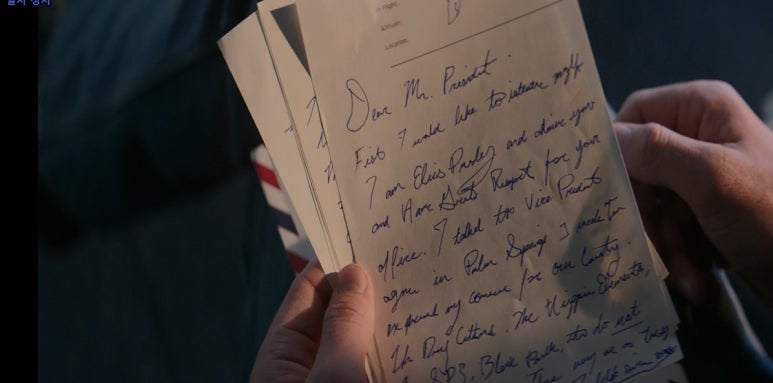 일시 정지
In Flight:
Altitude:
Location:
Dear Mr. President.
First I would like to introduce myself
I am Elvis Presley and admire you
and Have Great Respect for your
office. I talked to Vice President
agnew in Palm Springs I week ago
expressed my concern for our Country.
The Drug Culture, The Hippie Elements,
SDS, Black Panthers, etc do not